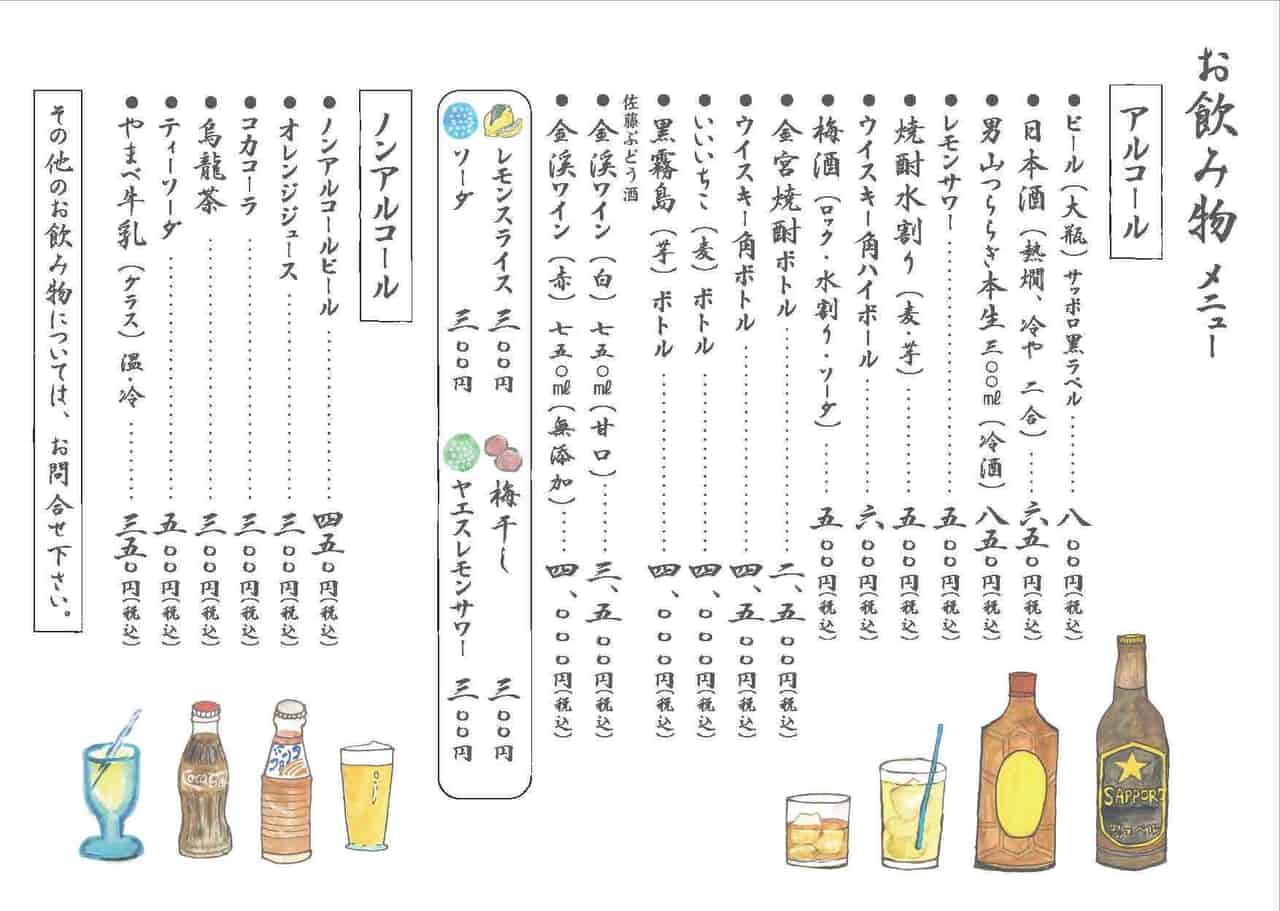 お飲み物 メニュー
アルコール
●ビール(大瓶)サッポロ黒ラベル…………八〇〇円(税込)
●日本酒(熱燗、冷や 二合)……六五〇円(税込)
●男山つららぎ本生 三〇〇㎖(冷酒)八五〇円(税込)
●レモンサワー……………………五〇〇円(税込)
●焼酎水割り(麦・芋)……………五〇〇円(税込)
●ウイスキー角ハイボール……………六〇〇円(税込)
●梅酒(ロック・水割り・ソーダ)………五〇〇円(税込)
●金宮焼酎ボトル……………………二、五〇〇円(税込)
●ウイスキー角ボトル…………………四、五〇〇円(税込)
●いいいちこ(麦)ボトル………………四、〇〇〇円(税込)
●黒霧島(芋)ボトル…………………四、〇〇〇円(税込)
佐藤ぶどう酒
●金渓ワイン(白)七五〇㎖(甘口)………三、五〇〇円(税込)
●金渓ワイン(赤)七五〇㎖(無添加)……四、〇〇〇円(税込)
レモンスライス 三〇〇円
梅干し 三〇〇円
ソーダ 三〇〇円
ヤエスレモンサワー 三〇〇円
ノンアルコール
●ノンアルコールビール………………四五〇円(税込)
●オレンジジュース…………………三〇〇円(税込)
●コカコーラ………………………三〇〇円(税込)
●烏龍茶…………………………三〇〇円(税込)
●ティーソーダ……………………五〇〇円(税込)
●やまべ牛乳(グラス)温・冷………三五〇円(税込)
その他のお飲み物については、お問合せ下さい。
SAPPORO
Coca-Cola